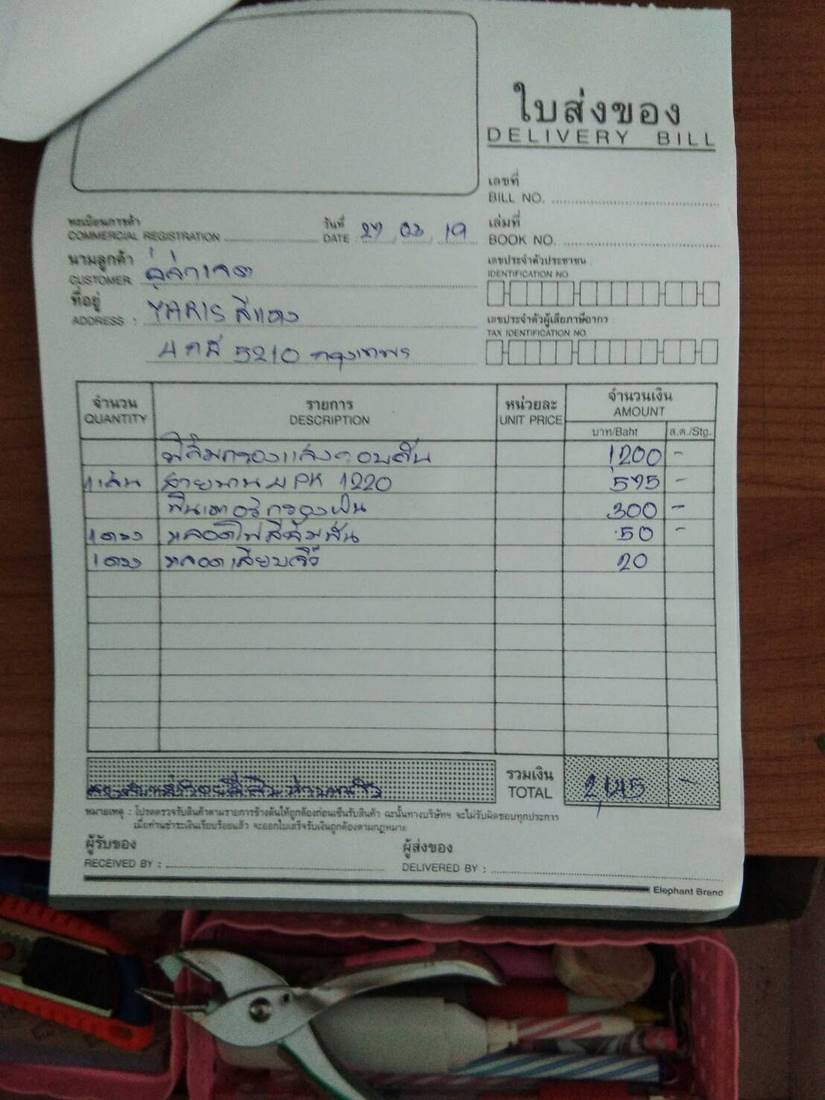 ใบส่งของ
DELIVERY BILL
เลขที่
BILL NO.
ทะเบียนการค้า
COMMERCIAL REGISTRATION
วันที่
DATE 27 02 19
เล่มที่
BOOK NO.
นามลูกค้า
CUSTOMER
เลขประจำตัวประชาชน
IDENTIFICATION NO.
ที่อยู่
ADDRESS : YARIS สีแดง
เลขประจำตัวผู้เสียภาษีอากร
TAX IDENTIFICATION NO.
5210 กรุงเทพร
จำนวน
QUANTITY
รายการ
DESCRIPTION
หน่วยละ
UNIT PRICE
จำนวนเงิน
AMOUNT
บาท/Baht ส.ต./Stg.
ฟิล์มกรองแสงรอบคัน 1200 -
1 เส้น สายพาน 4PK 1220 575 -
ฟิลเตอร์กรองฝุ่น 300 -
1 ดวง หลอดไฟสีส้มตัน 50 -
1 ดวง หลอดเสียบจิ๋ว 20
สองพันหนึ่งร้อยสี่สิบห้าบาทถ้วน
รวมเงิน
TOTAL 2,145 -
หมายเหตุ : โปรดตรวจรับสินค้าตามรายการข้างต้นให้ถูกต้องก่อนเซ็นรับสินค้า ฉะนั้นทางบริษัทฯ จะไม่รับผิดชอบทุกประการ
เมื่อท่านชำระเงินเรียบร้อยแล้ว จะออกใบเสร็จรับเงินถูกต้องตามกฎหมาย
ผู้รับของ
RECEIVED BY :
ผู้ส่งของ
DELIVERED BY :
Elephant Brand